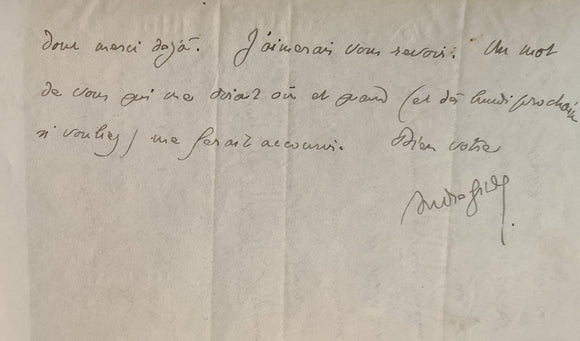 donc merci déjà. J'aimerais vous revoir. Un mot
de vous qui me dirait où et quand (et dès lundi prochain
si vouliez) me ferait accourir. Bien votre